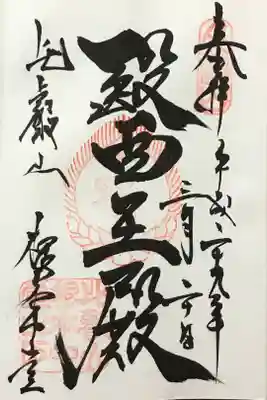 奉拝
平成
三月二十日
醫王殿
比叡山
根本中堂